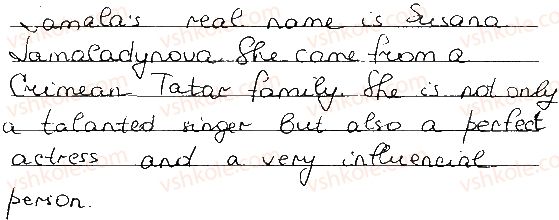 Jamala's real name is Susana
Jamaladynova. She came from a
Crimean Tatar family. She is not only
a talanted singer but also a perfect
actress and a very influencial
person.